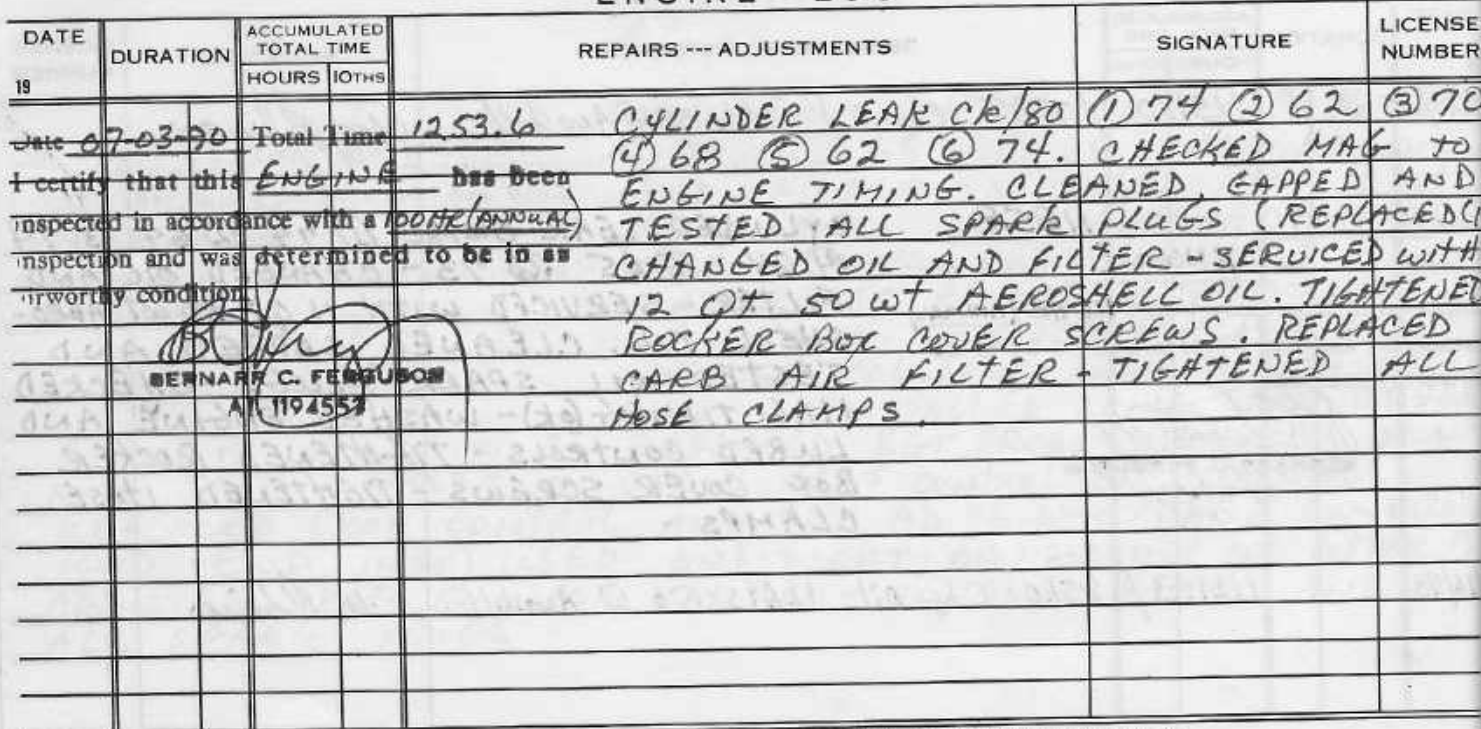 DATE
19
DURATION
ACCUMULATED
TOTAL TIME
HOURS 10THS
REPAIRS --- ADJUSTMENTS
SIGNATURE
LICENSE
NUMBER
Date 07-03-90 Total Time 1253.6
I certify that this ENGINE has been
inspected in accordance with a 100HR (ANNUAL)
inspection and was determined to be in an
airworthy condition
BERNARR C. FERGUSON
CYLINDER LEAK CK/80 (1) 74 (2) 62 (3) 70
(4) 68 (5) 62 (6) 74. CHECKED MAG TO
ENGINE TIMING. CLEANED, GAPPED AND
TESTED ALL SPARK PLUGS (REPLACED
CHANGED OIL AND FILTER - SERVICED WITH
12 QT 50 WT AEROSHELL OIL. TIGHTENED
ROCKER BOX COVER SCREWS. REPLACED
CARB AIR FILTER - TIGHTENED ALL
HOSE CLAMPS.